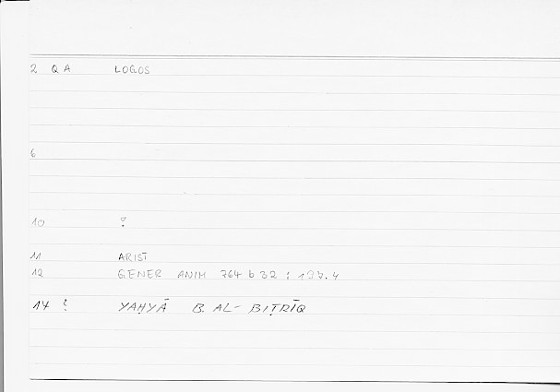 2 QA LOGOS
6
10 ?
11 ARIST
12 GENER ANIM 764 b 32 : 137.4
14 ? YAḤYĀ B. AL-BIṬRĪQ